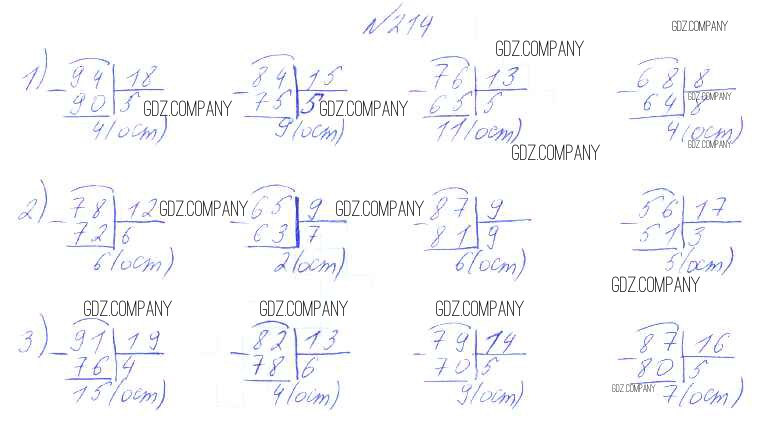 №214
GDZ.COMPANY
GDZ.COMPANY
1) 94 | 18 84 | 15 76 | 13 68 | 8
90 | 5 GDZ.COMPANY 75 | 5 GDZ.COMPANY 65 | 5 64 | 8 GDZ.COMPANY
4(ост) 9(ост) 11(ост) 4(ост)
GDZ.COMPANY GDZ.COMPANY
2) 78 | 12 GDZ.COMPANY 65 | 9 GDZ.COMPANY 87 | 9 56 | 17
72 | 6 63 | 7 81 | 9 51 | 3
6(ост) 2(ост) 6(ост) 5(ост)
GDZ.COMPANY
GDZ.COMPANY GDZ.COMPANY GDZ.COMPANY
3) 91 | 19 82 | 13 79 | 14 87 | 16
76 | 4 78 | 6 70 | 5 80 | 5
15(ост) 4(ост) 9(ост) GDZ.COMPANY 7(ост)